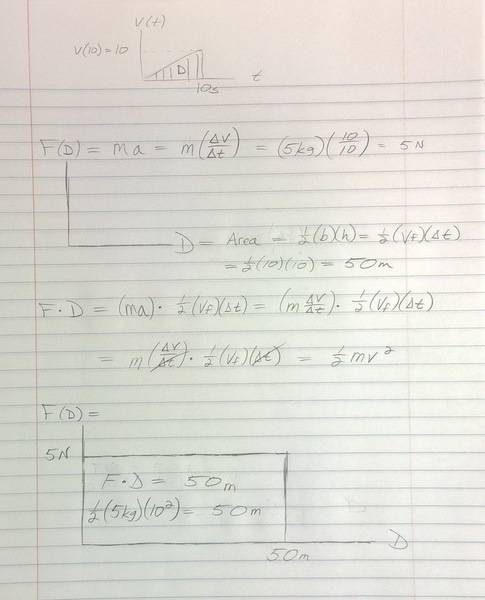 V(t)
V(10) = 10
D
10s
t
F(D) = ma = m(ΔV/Δt) = (5kg)(10/10) = 5N
D = Area = ½(b)(h) = ½(Vf)(Δt)
= ½(10)(10) = 50m
F·D = (ma)· ½(Vf)(Δt) = (m ΔV/Δt)· ½(Vf)(Δt)
= m(ΔV/Δt)· ½(Vf)(Δt) = ½mv²
F(D) =
5N
F·D = 50m
½(5kg)(10²) = 50m
50m
D